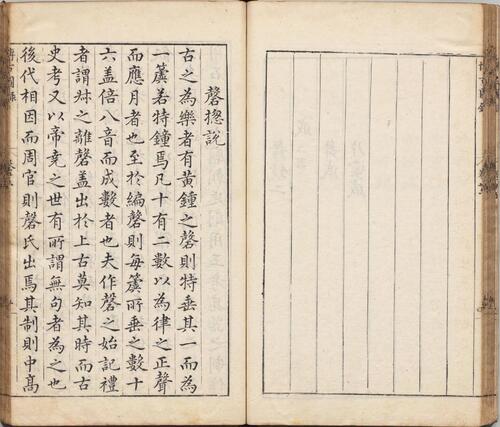 磬揔說
古之為樂者有黄鐘之磬則特垂其一而為
一簴若特鐘焉凡十有二數以為律之正聲
而應月者也至於編磬則每簴所垂之數十
六盖倍八音而成數者也夫作磬之始記禮
者謂叔之離磬盖出於上古莫知其時而古
史考又以帝堯之世有所謂無句者為之也
後代相因而周官則磬氏出焉其制則中髙